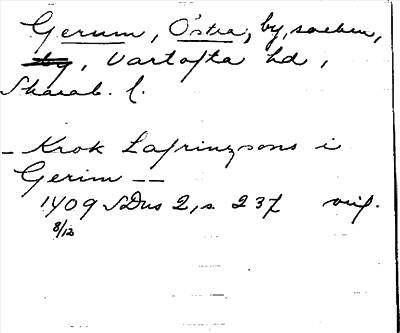 Gerum, Östra, by, socken,
by, Vartofta hd,
Skarab. l.
– Krok Lafrinzsons i
Gerim –-
1409 SDns 2, s 237 orig.
8/12